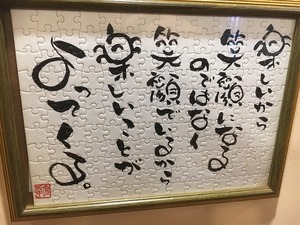 楽しいから
笑顔になる
のではなく
笑顔でいるから
楽しいことが
やってくる。